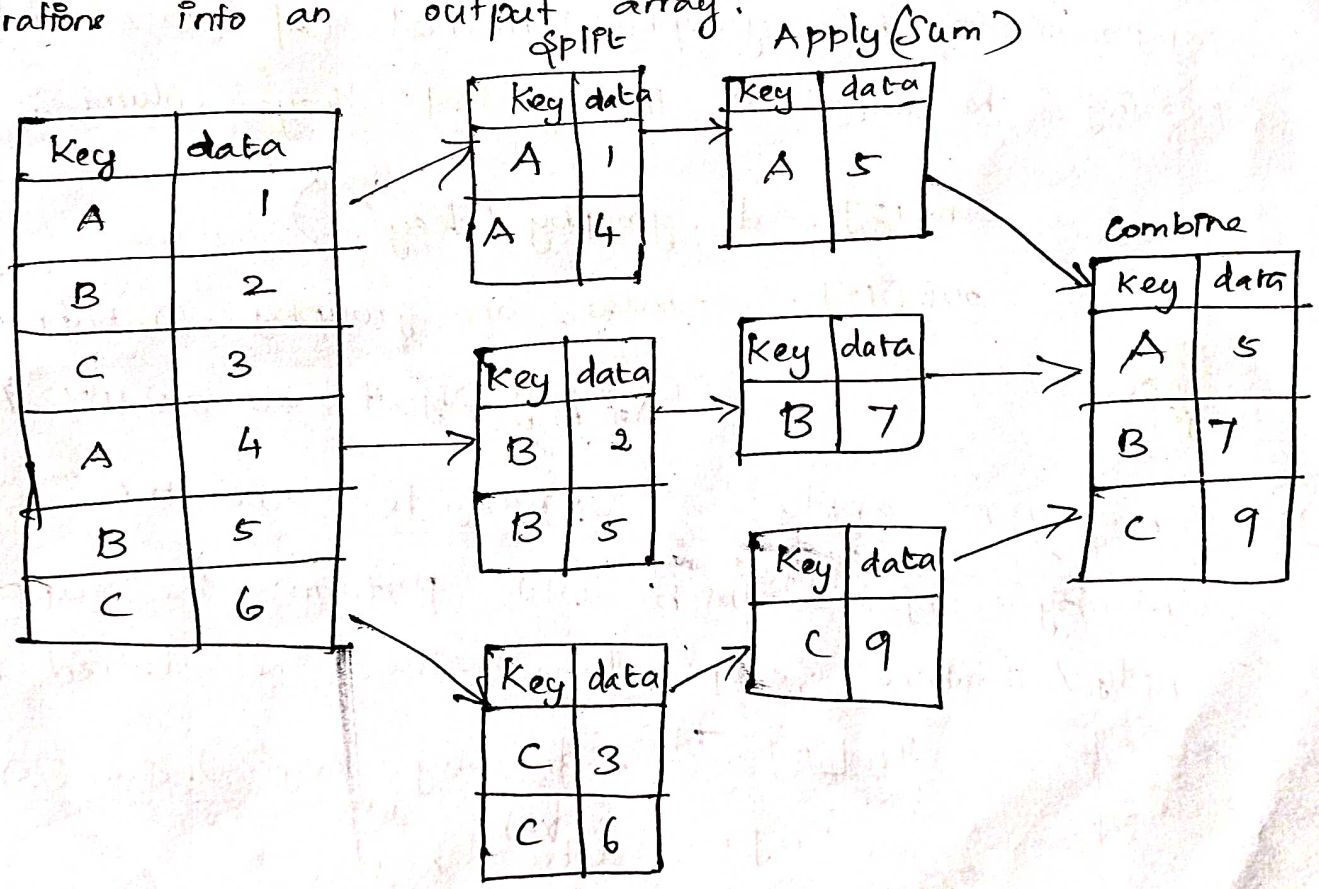 rations into an output array.
Split
Apply (Sum)
Key data
A 1
B 2
C 3
A 4
B 5
C 6
Key data
A 1
A 4
Key data
A 5
Key data
B 2
B 5
Key data
B 7
Key data
C 3
C 6
Key data
C 9
Combine
Key data
A 5
B 7
C 9